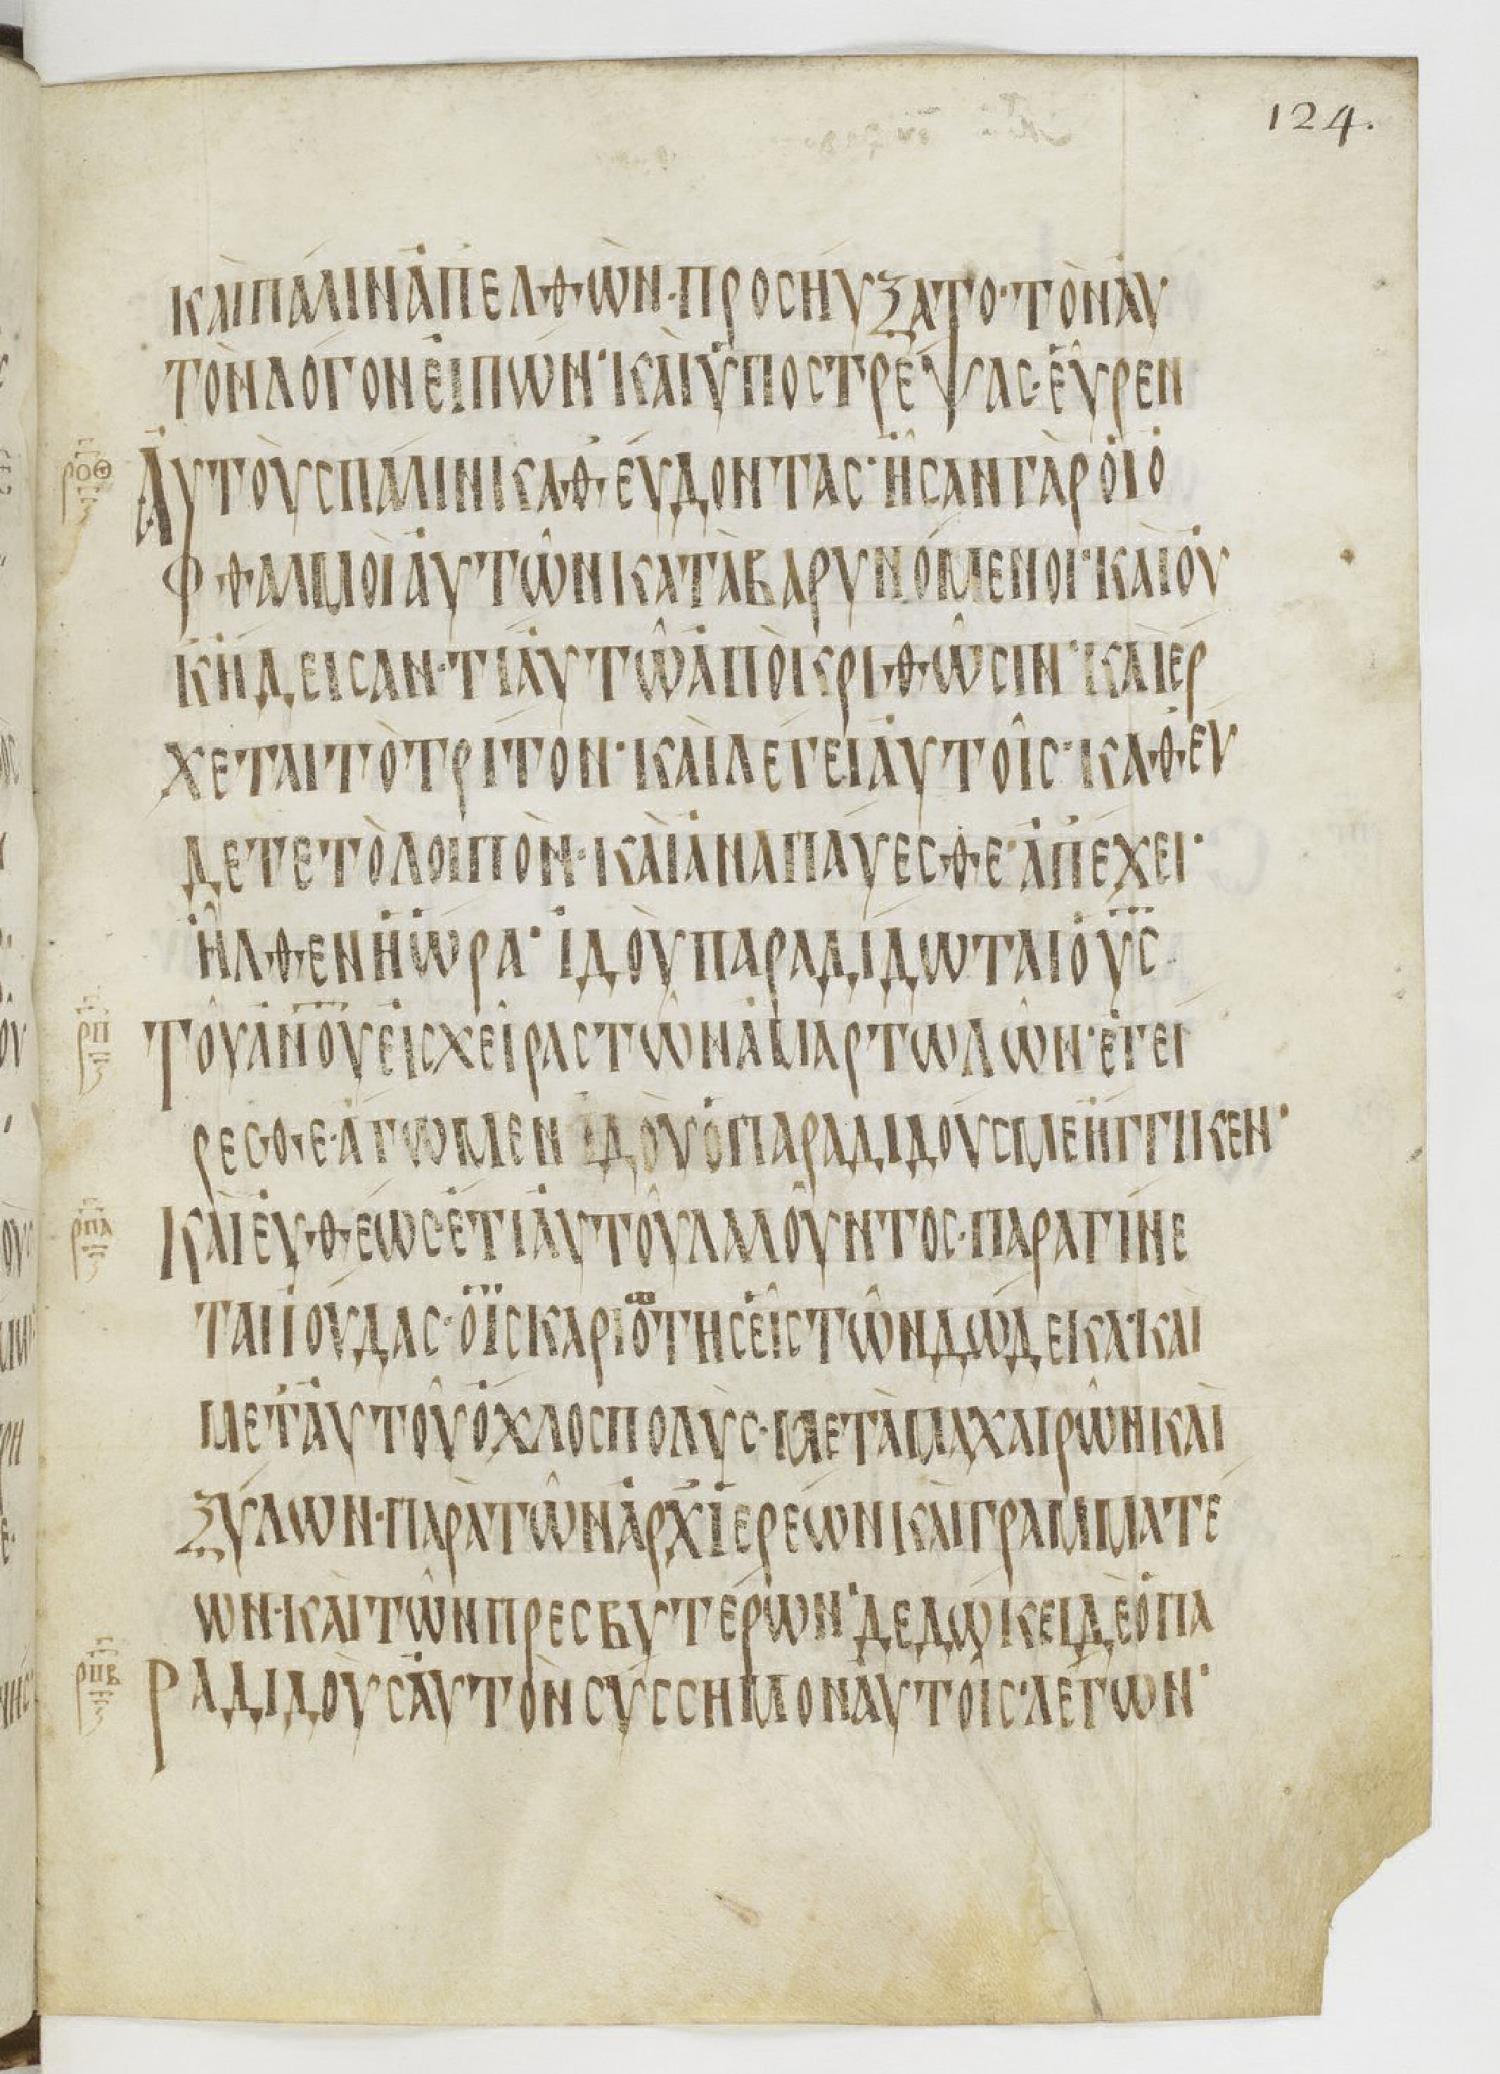 124.
ΚΑΙ ΠΑΛΙΝ ΑΠΕΛΘΩΝ· ΠΡΟΣΗΥΞΑΤΟ· ΤΟΝ ΑΥ
ΤΟΝ ΛΟΓΟΝ ΕΙΠΩΝ· ΚΑΙ ΫΠΟΣΤΡΕΨΑΣ· ΕΥΡΕΝ
ΡΟΘ ΑΥΤΟΥΣ ΠΑΛΙΝ ΚΑΘΕΥΔΟΝΤΑΣ· ΗΣΑΝ ΓΑΡ ΟΙ Ο
ΦΘΑΛΜΟΙ ΑΥΤΩΝ ΚΑΤΑΒΑΡΥΝΟΜΕΝΟΙ· ΚΑΙ ΟΥ
Κ ΗΔΕΙΣΑΝ· ΤΙ ΑΥΤΩ ΑΠΟΚΡΙΘΩΣΙΝ· ΚΑΙ ΕΡ
ΧΕΤΑΙ ΤΟ ΤΡΙΤΟΝ· ΚΑΙ ΛΕΓΕΙ ΑΥΤΟΙΣ· ΚΑΘΕΥ
ΔΕΤΕ ΤΟ ΛΟΙΠΟΝ· ΚΑΙ ΑΝΑΠΑΥΕΣΘΕ· ΑΠΕΧΕΙ·
ΗΛΘΕΝ Η ΩΡΑ· ΙΔΟΥ ΠΑΡΑΔΙΔΩΤΑΙ Ο Υ̅Σ̅
ΡΠ ΤΟΥ Α̅Ν̅Ο̅Υ̅ ΕΙΣ ΧΕΙΡΑΣ ΤΩΝ ΑΜΑΡΤΩΛΩΝ· ΕΓΕΙ
ΡΕΣΘΕ· ΑΓΩΜΕΝ ΙΔΟΥ Ο ΠΑΡΑΔΙΔΟΥΣ ΜΕ ΗΓΓΙΚΕΝ·
ΡΠΑ ΚΑΙ ΕΥΘΕΩΣ· ΕΤΙ ΑΥΤΟΥ ΛΑΛΟΥΝΤΟΣ· ΠΑΡΑΓΙΝΕ
ΤΑΙ ΙΟΥΔΑΣ· Ο ΪΣΚΑΡΙΟΤΗΣ ΕΙΣ ΤΩΝ ΔΩΔΕΚΑ· ΚΑΙ
ΜΕΤ ΑΥΤΟΥ ΟΧΛΟΣ ΠΟΛΥΣ· ΜΕΤΑ ΜΑΧΑΙΡΩΝ ΚΑΙ
ΞΥΛΩΝ· ΠΑΡΑ ΤΩΝ ΑΡΧΙΕΡΕΩΝ ΚΑΙ ΓΡΑΜΜΑΤΕ
ΩΝ· ΚΑΙ ΤΩΝ ΠΡΕΣΒΥΤΕΡΩΝ· ΔΕΔΩΚΕΙ ΔΕ Ο ΠΑ
ΡΠΒ ΡΑΔΙΔΟΥΣ ΑΥΤΟΝ ΣΥΣΣΗΜΟΝ ΑΥΤΟΙΣ· ΛΕΓΩΝ·